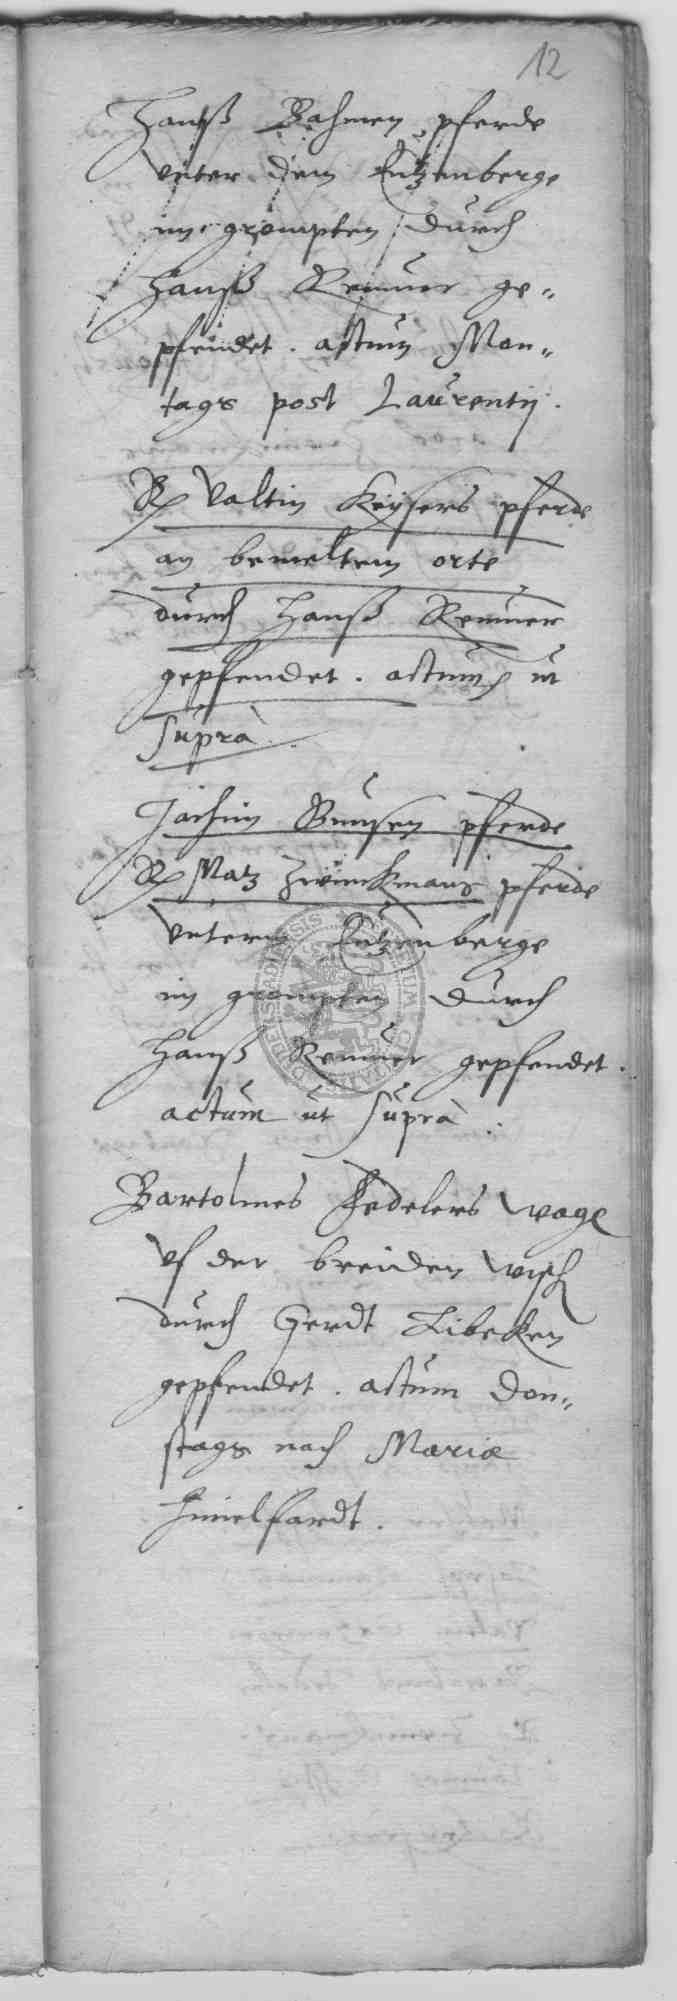 12
Hanß Bahmen pferde
Unter dem Lutzenberge
im grompten durch
Hanß Remmer ge„
pfendet . actum Mon„
tags post Laurentij .
Rx Valtin Keysers pferde
an bemeltem orte
durch Hanß Remmer
gepfendet . actum ut
supra .
Jachim Bunsen pferde
Rx Matz Zwinckmans pferde
Unterm Lutzenberge
im grompten durch
Hanß Remmer gepfendet .
actum ut supra .
Bartolmes Fedelers wage
uf der breiden wisch
durch Gerdt Libeken
gepfendet . actum Don„
stags nach Mariæ
Himelfardt .